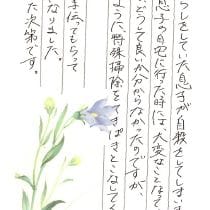 らしをしていた息子が自殺をしてしまい
息子の自宅に行った時には、大変なことなって
どうして良いか分からなかったのですが、
ように特殊掃除をてきぱきとこなしてく
手伝ってもらって
なりました。
た次第です。